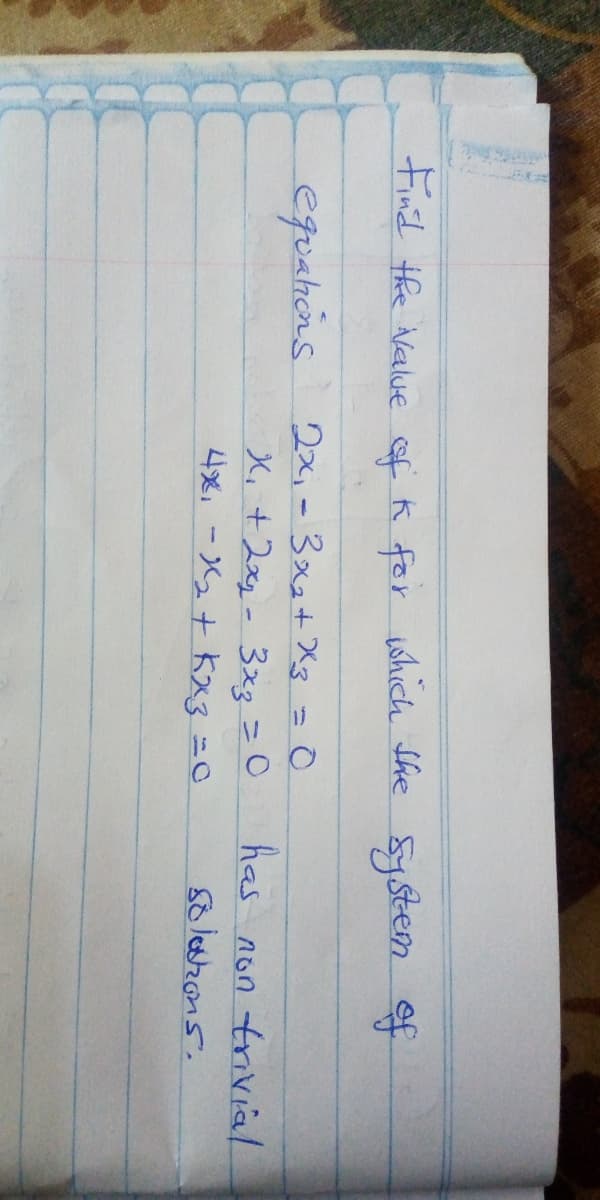 Find the Value of k for which the system of
equations 2x₁ - 3x₂ + x₃ = 0
x₁ + 2x₂ - 3x₃ = 0 has non trivial
4x₁ - x₂ + kx₃ = 0 solutions.